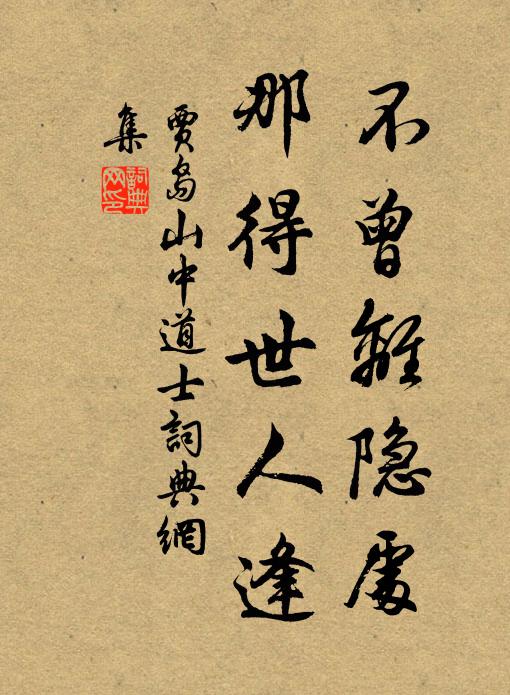 不曾離隐處
那得世人逢
賈島山中道士詞典網
集
詞典
网印